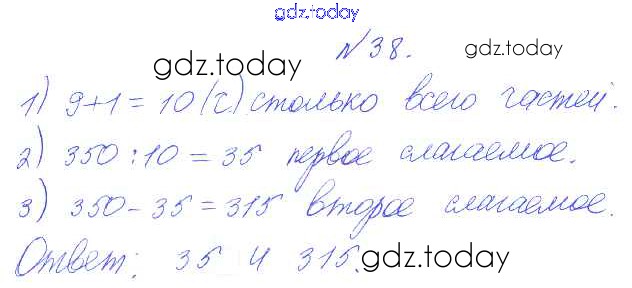 gdz.today
№38.
gdz.today
gdz.today
1) 9+1=10 (ч.) столько всего частей.
2) 350:10=35 первое слагаемое.
3) 350-35=315 второе слагаемое.
Ответ: 35 и 315.
gdz.today